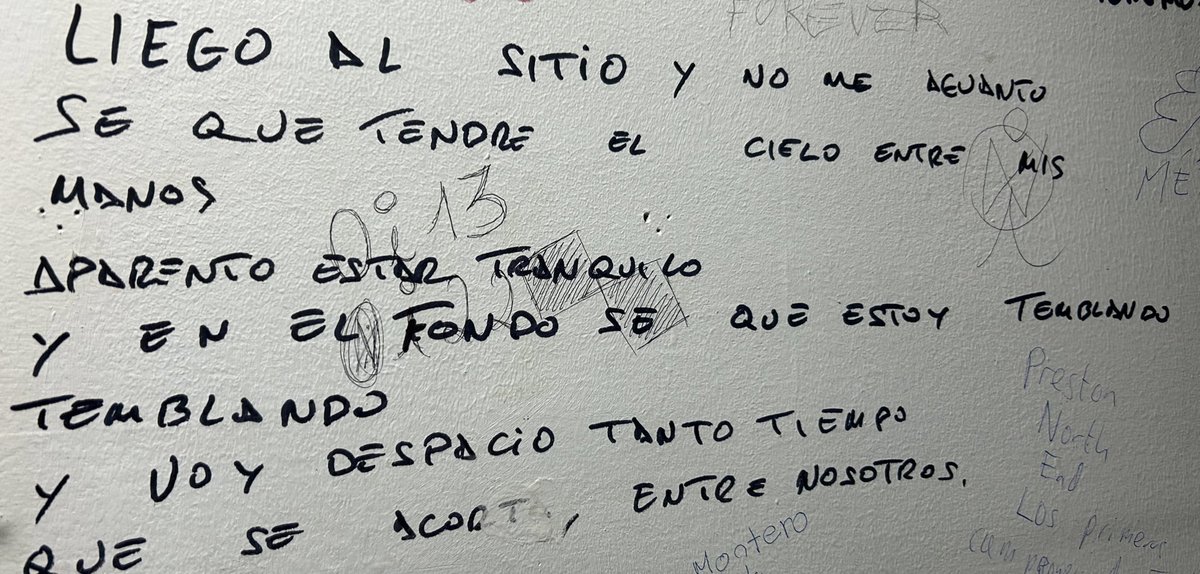 FOREVER
LIEGO AL SITIO Y NO ME AGUANTO
SE QUE TENDRE EL CIELO ENTRE MIS
MANOS
13
APARENTO ESTAR TRANQUILO
Y EN EL FONDO SE QUE ESTOY TEMBLANDO
TEMBLANDO
Y VOY DESPACIO TANTO TIEMPO
QUE SE ACORTA, ENTRE NOSOTROS.
ME
Preston
North
End
Los primeros
Montero